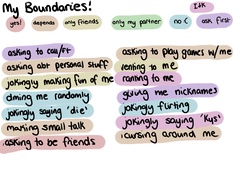 My Boundaries!
Idk
yes!
depends
only friends
only my partner
no :(
ask first
asking to call/FT
asking abt personal stuff
jokingly making fun of me
dming me randomly
jokingly saying 'die'
making small talk
asking to be friends
asking to play games w/me
venting to me
ranting to me
giving me nicknames
jokingly flirting
jokingly saying 'kys'
cursing around me